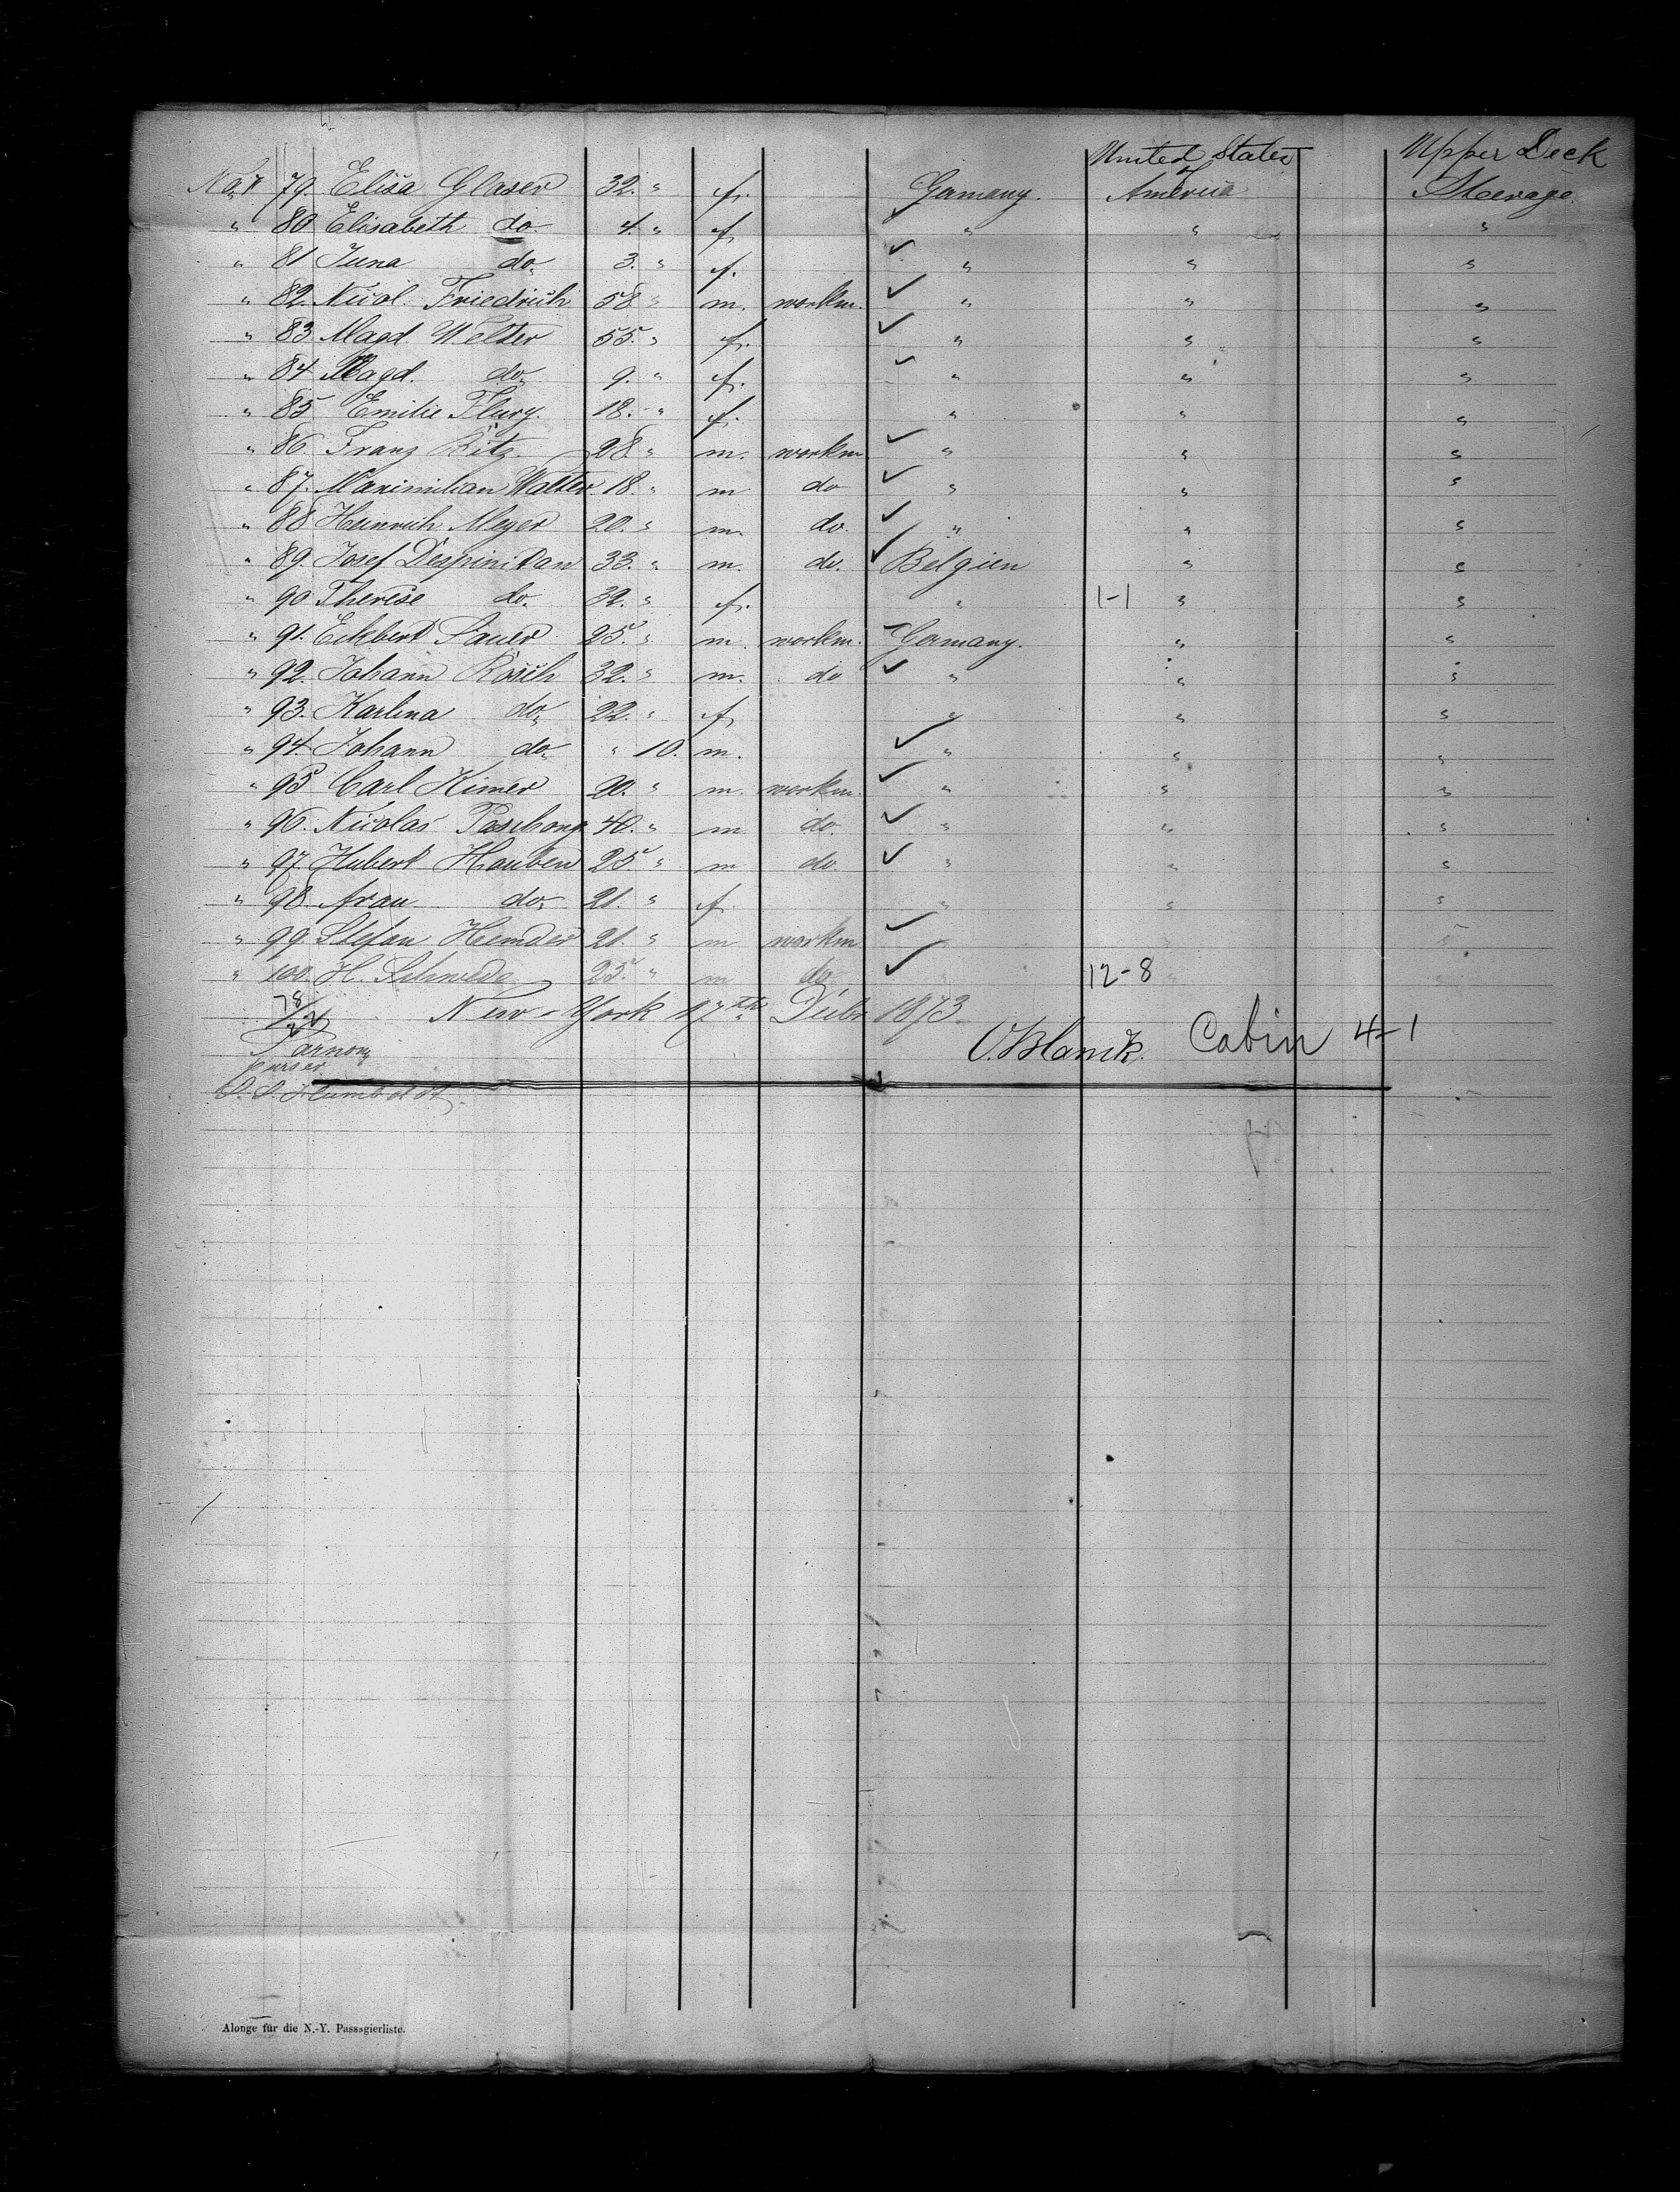 United States Upper Deck
of
No. 79. Elisa Glaser 32. " f. Germany. America Steerage.
" 80 Elisabeth do. 4. " f. " " "
" 81 Juna do. 3. " f. " " "
" 82. Nicol. Friedrich 58 " m. workm. " " "
" 83 Magd. Welter 55. " f. " " "
" 84 Magd. do. 9. " f. " " "
" 85 Emilie Flury. 18. " f. " " "
" 86. Franz Ritz. 28. " m. workm " " "
" 87. Maximilian Walter. 18. " m do " " "
" 88 Heinrich Meyer 20. " m. do. " " "
" 89. Josef 33. " m. do. Belgien " "
" 90 Therese do. 32. " f. " 1-1 " "
" 91. Eckbert Sauer 25. " m. workm. Germany. " "
" 92. Johann Rösch 32. " m. do " " "
" 93. Karlina do. 22. " f. " " "
" 94. Johann do. " 10. m. " " "
" 95 Carl Kimer 20. " m. workm. " " "
" 96. Nicolas Paschong 40. " m do. " " "
" 97. Hubert Hauben 25. " m do. " " "
" 98. frau do. 21. " f. " " "
" 99. Stefan Hemder 21. " m workm " "
" 100. H. Schwede 25. " m do 12-8 "
New-York 17th Decbr 1873.
Cabin 4-1
purser
S. S. Humboldt
Alonge für die N.-Y. Passagierliste.